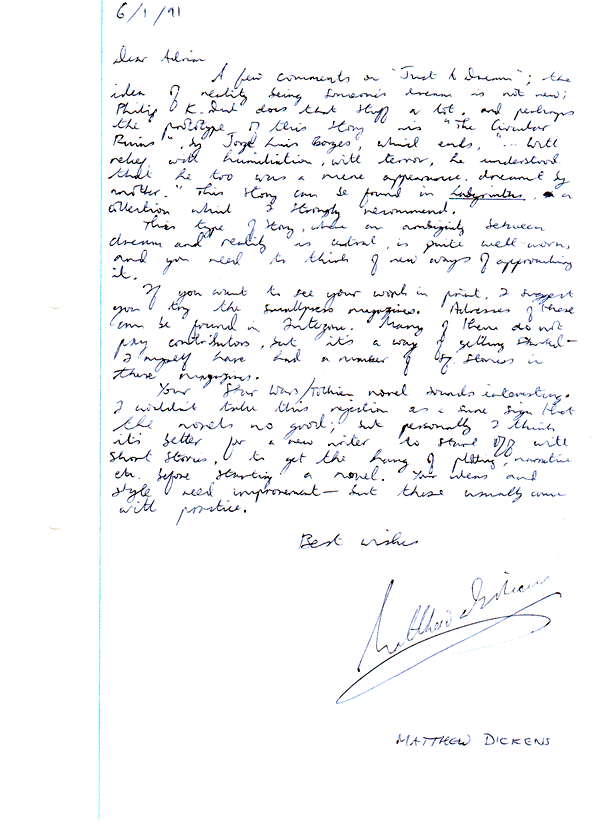 6/1/91
Dear Adrian
A few comments on "Just A Dream"; the
idea of reality being someone's dream is not new;
Philip K. Dick does that stuff a lot, and perhaps
the prototype of this story is "The Circular
Ruins", by Jorge Luis Borges, which ends, "... With
relief, with humiliation, with terror, he understood
that he too was a mere appearance, dreamt by
another." This story can be found in Labyrinths, a
collection which I strongly recommend.
This type of story, where an ambiguity between
dream and reality is central, is quite well-worn,
and you need to think of new ways of approaching
it.
If you want to see your work in print, I suggest
you try the smallpress magazines. Adresses of these
can be found in Interzone. Many of them do not
pay contributors, but it's a way of getting started—
I myself have had a number of my stories in
these magazines.
Your Star Wars/Tolkien novel sounds interesting.
I wouldn't take this rejection as a sure sign that
the novel's no good; but personally I think
it's better for a new writer to start off with
short stories, to get the hang of plotting, narrative
etc. before starting a novel. Your ideas and
style need improvement— but these usually come
with practice.
Best wishes
Matthew Dickens
MATTHEW DICKENS